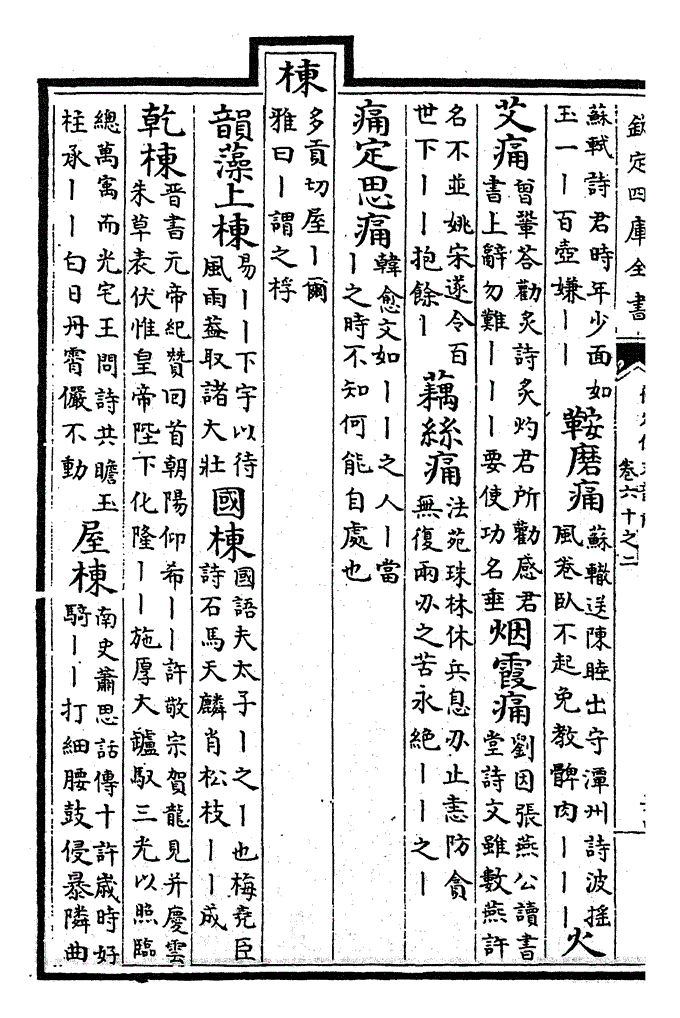 欽定四庫全書
卷六十之二
蘇軾詩君時年少面如
玉一丨百壺嫌丨丨
鞍磨痛
蘇轍送陳睦出守潭州詩波搖
風卷臥不起免教髀肉丨丨丨
火
艾痛
曾鞏答勸灸詩灸灼君所勸感君
書上辭勿難丨丨丨要使功名垂
烟霞痛
劉因張燕公讀書
堂詩文雖數燕許
名不並姚宋遂令百
世下丨丨抱餘丨
藕絲痛
法苑珠林休兵息刃止恚防貪
無復兩刃之苦永絕丨丨之丨
痛定思痛
韓愈文如丨丨之人丨當
丨之時不知何能自處也
棟
多貢切屋丨爾
雅曰丨謂之桴
韻藻上棟
易丨丨下宇以待
風雨蓋取諸大壯
國棟
國語夫太子丨之丨也梅堯臣
詩石馬天麟肖松枝丨丨成
乾棟
晉書元帝紀贊回首朝陽仰希丨丨許敬宗賀龍見并慶雲
朱草表伏惟皇帝陛下化隆丨丨施厚大鑪馭三光以照臨
總萬寓而光宅王問詩共瞻玉
柱承丨丨白日丹霄儼不動
屋棟
南史蕭思話傳十許歲時好
騎丨丨打細腰鼓侵暴隣曲